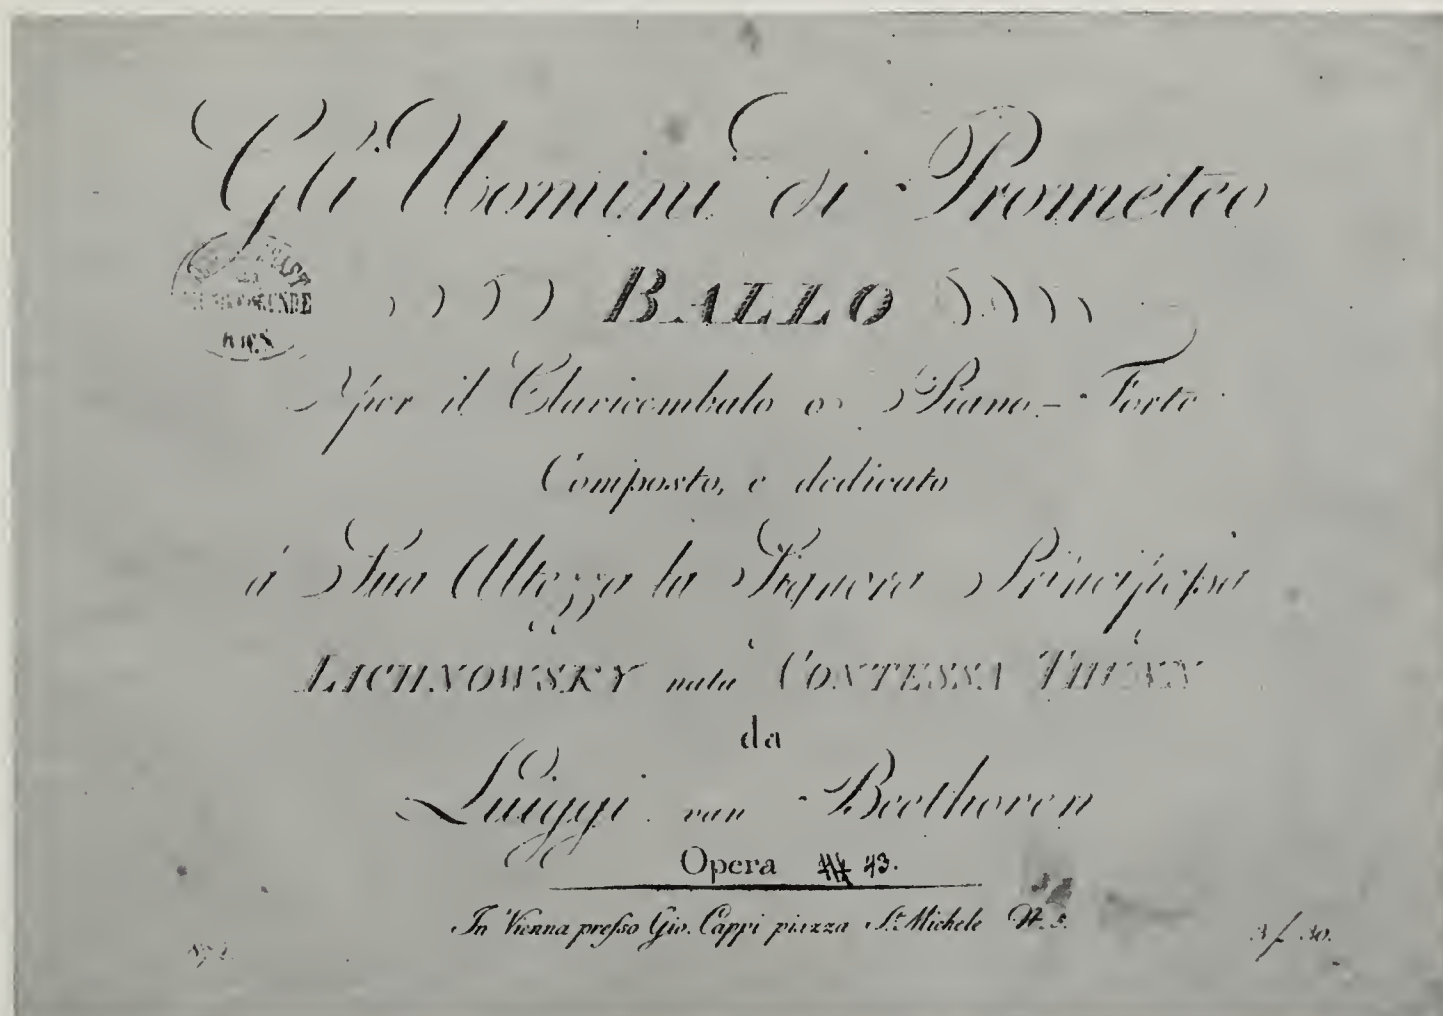 Gli Uomini di Prometeo
BALLO
per il Clavicembalo o Piano-Forte
Composto, e dedicato
á Sua Altezza la Signora Principeſsa
LICHNOWSKY nata CONTESSA THUNN
da
Luiggi van Beethoven
Opera 43.
In Vienna preſso Gio. Cappi piazza St. Michele N. 5.
3 f 30.
WIEN